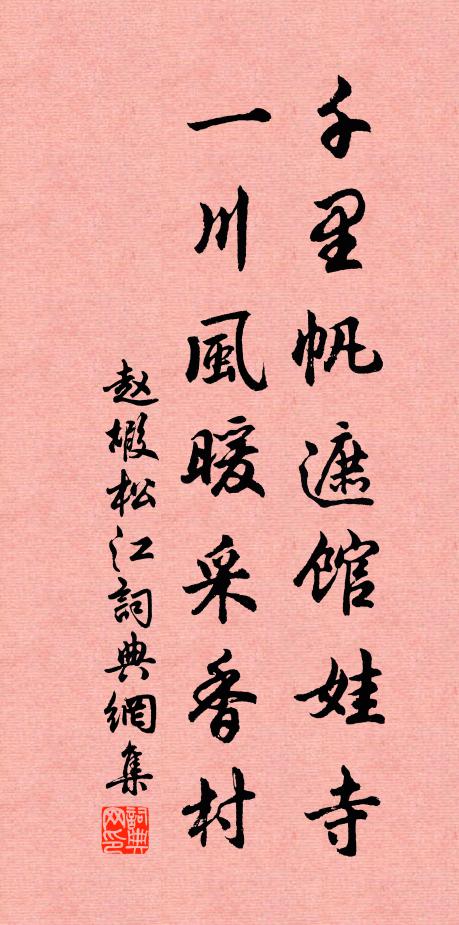 千里帆遮馆娃寺
一川風暖采香村
赵嘏松江詞典網集
詞典网印